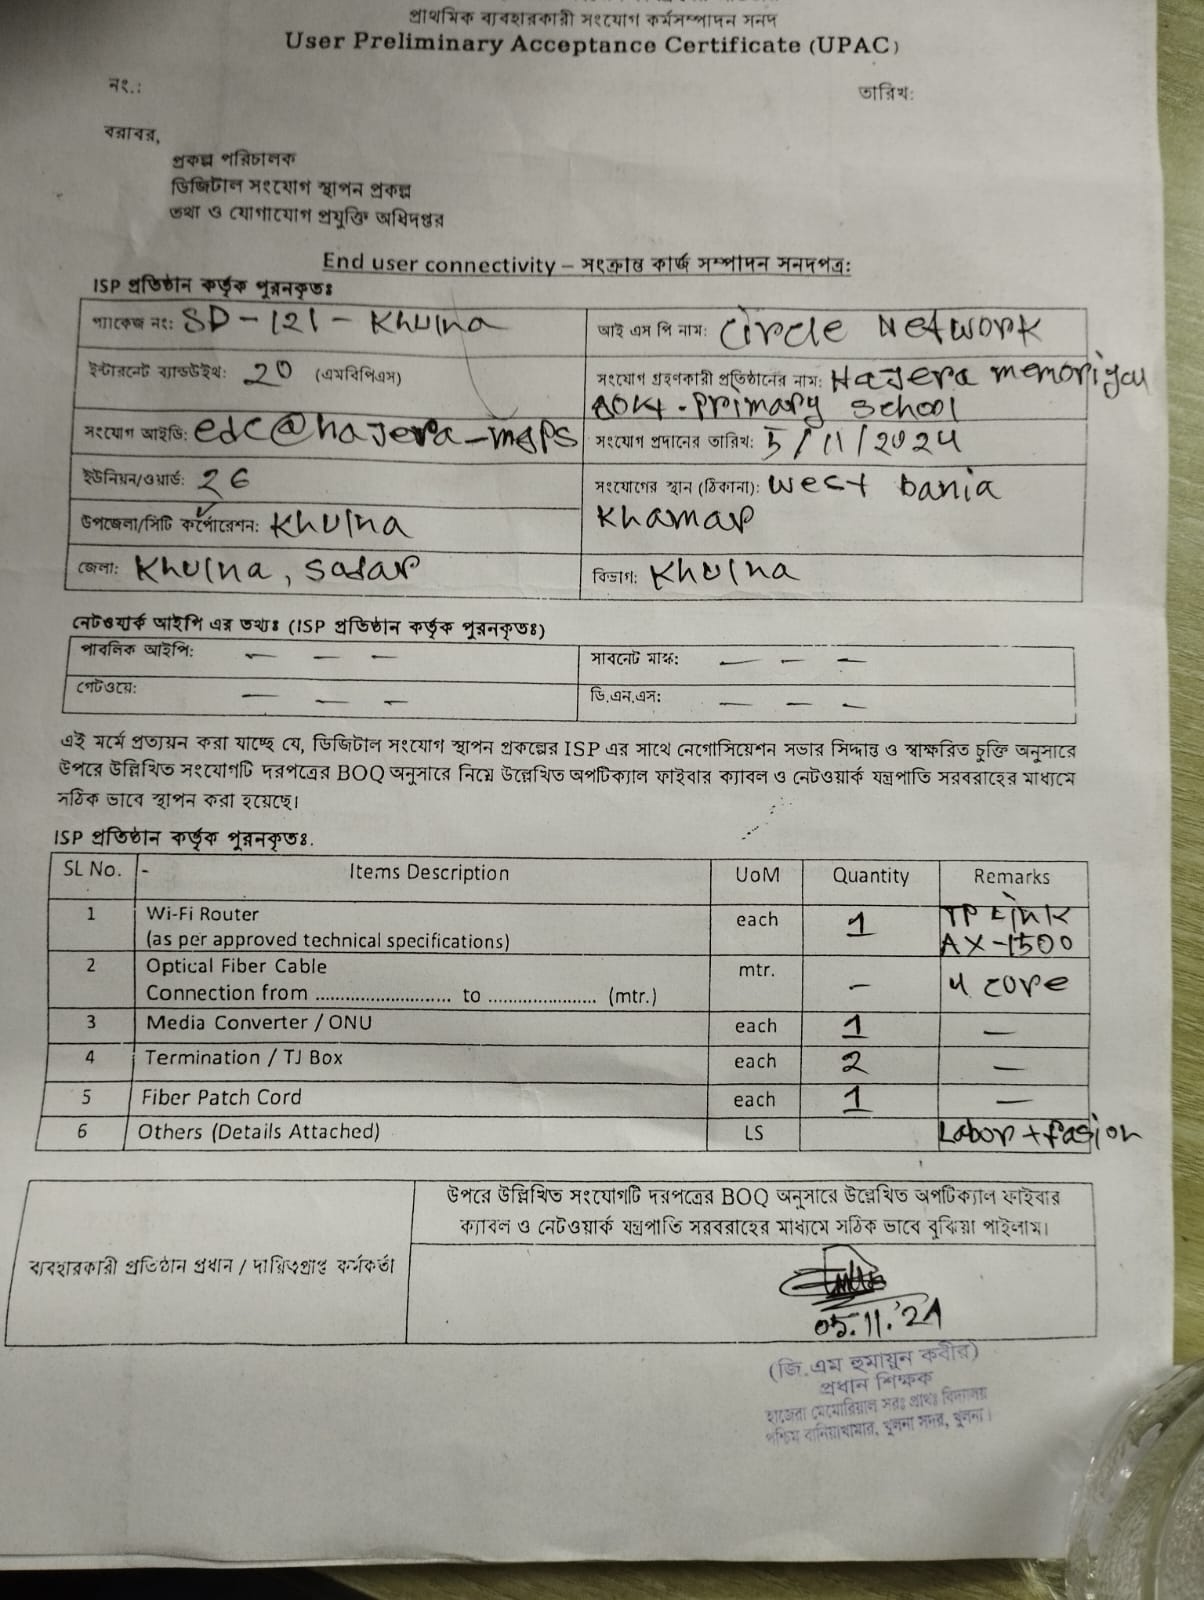 প্রাথমিক ব্যবহারকারী সংযোগ কর্মসম্পাদন সনদ
User Preliminary Acceptance Certificate (UPAC)
নং.:
তারিখ:
বরাবর,
প্রকল্প পরিচালক
ডিজিটাল সংযোগ স্থাপন প্রকল্প
তথ্য ও যোগাযোগ প্রযুক্তি অধিদপ্তর
End user connectivity – সংক্রান্ত কার্জ সম্পাদন সনদপত্র:
ISP প্রতিষ্ঠান কর্তৃক পুরনকৃতঃ
প্যাকেজ নং: SD-121-Khulna
আই এস পি নাম: Circle Network
ইন্টারনেট ব্যান্ডউইথ: 20 (এমবিপিএস)
সংযোগ গ্রহণকারী প্রতিষ্ঠানের নাম: Hajera memoriyal
Govt. Primary School
সংযোগ আইডি: edc@hajera-mgps
সংযোগ প্রদানের তারিখ: 5/11/2024
ইউনিয়ন/ওয়ার্ড: 26
সংযোগের স্থান (ঠিকানা): West bania
Khamar
উপজেলা/সিটি কর্পোরেশন: Khulna
জেলা: Khulna, Sadar
বিভাগ: Khulna
নেটওয়ার্ক আইপি এর তথ্যঃ (ISP প্রতিষ্ঠান কর্তৃক পুরনকৃতঃ)
পাবলিক আইপি: — — —
সাবনেট মাস্ক: — — —
গেটওয়ে: — — —
ডি.এন.এস: — — —
এই মর্মে প্রত্যয়ন করা যাচ্ছে যে, ডিজিটাল সংযোগ স্থাপন প্রকল্পের ISP এর সাথে নেগোসিয়েশন সভার সিদ্দান্ত ও স্বাক্ষরিত চুক্তি অনুসারে
উপরে উল্লিখিত সংযোগটি দরপত্রের BOQ অনুসারে নিম্নে উল্লেখিত অপটিক্যাল ফাইবার ক্যাবল ও নেটওয়ার্ক যন্ত্রপাতি সরবরাহের মাধ্যমে
সঠিক ভাবে স্থাপন করা হয়েছে।
ISP প্রতিষ্ঠান কর্তৃক পুরনকৃতঃ.
SL No. - Items Description UoM Quantity Remarks
1 Wi-Fi Router each 1 TP Link
(as per approved technical specifications) AX-1500
2 Optical Fiber Cable mtr. — 4 core
Connection from ........................... to ...................... (mtr.)
3 Media Converter / ONU each 1 —
4 Termination / TJ Box each 2 —
5 Fiber Patch Cord each 1 —
6 Others (Details Attached) LS Labor + fasion
উপরে উল্লিখিত সংযোগটি দরপত্রের BOQ অনুসারে উল্লেখিত অপটিক্যাল ফাইবার
ক্যাবল ও নেটওয়ার্ক যন্ত্রপাতি সরবরাহের মাধ্যমে সঠিক ভাবে বুঝিয়া পাইলাম।
ব্যবহারকারী প্রতিষ্ঠান প্রধান / দায়িত্বপ্রাপ্ত কর্মকর্তা
05.11.'24
(জি.এম হুমায়ুন কবীর)
প্রধান শিক্ষক
হাজেরা মেমোরিয়াল সরঃ প্রাথঃ বিদ্যালয়
পশ্চিম বানিয়াখামার, খুলনা সদর, খুলনা।